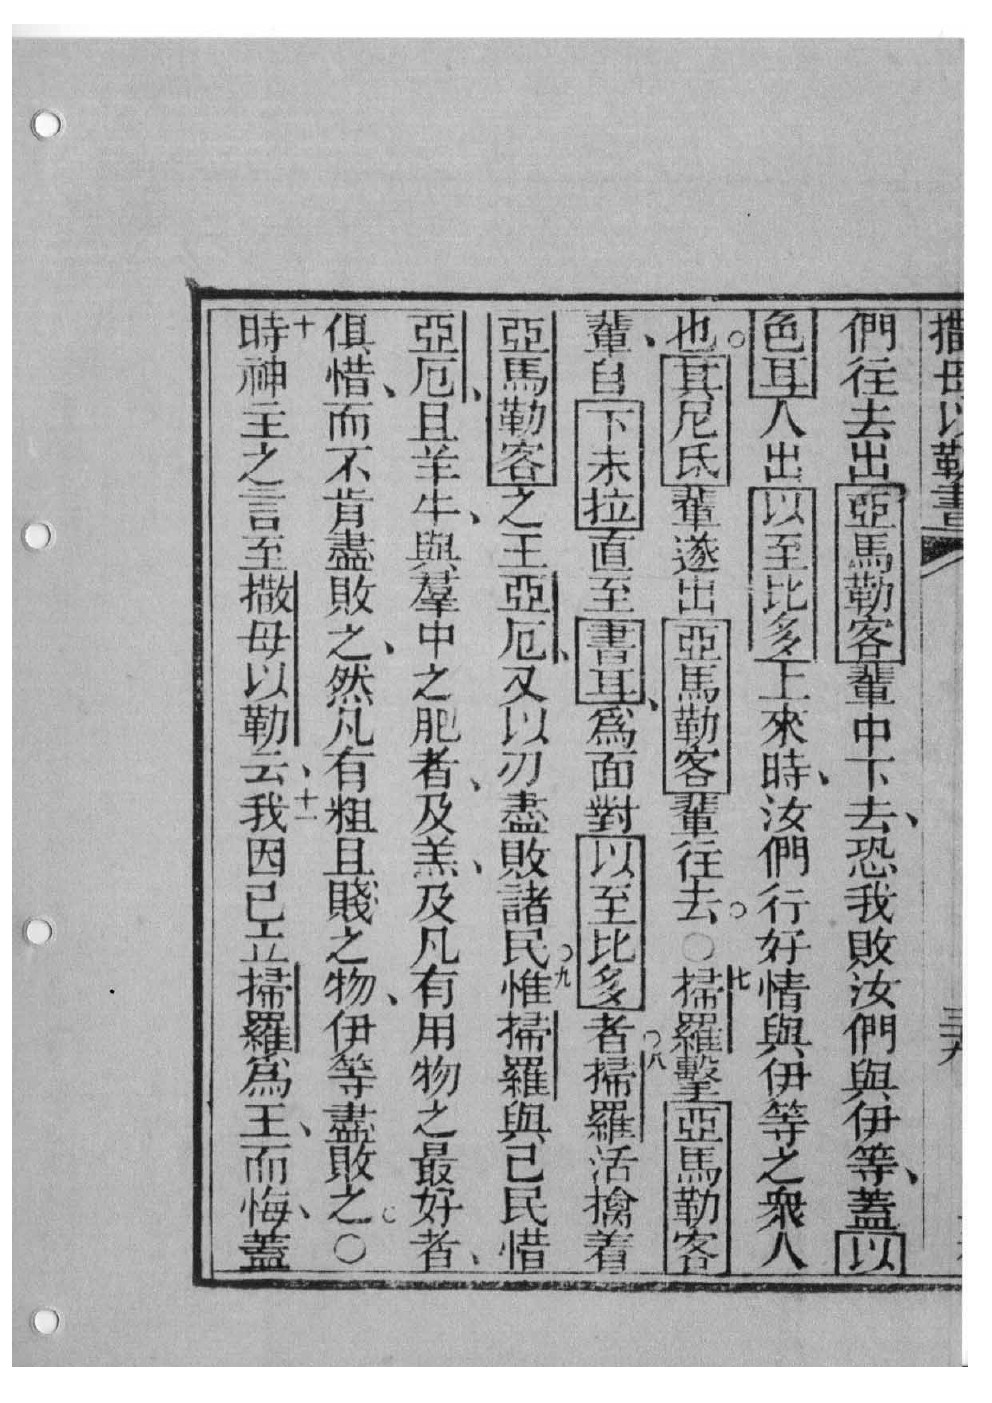 撒母以勒書
三九
們往去出亞馬勒客輩中下去、恐我敗汝們與伊等、蓋以
色耳人出以至比多上來時、汝們行好情與伊等之衆人
也。其尼氏輩遂出亞馬勒客輩往去。○七掃羅擊亞馬勒客
輩、自下未拉直至書耳、爲面對以至比多者。八掃羅活擒着
亞馬勒客之王亞厄、又以刃盡敗諸民。九惟掃羅與己民惜
亞厄、且羊牛、與羣中之肥者、及羔、及凡有用物之最好者、
俱惜、而不肯盡敗之、然凡有粗且賤之物、伊等盡敗之。○
十時神主之言至撒母以勒云、十一我因已立掃羅爲王、而悔、蓋